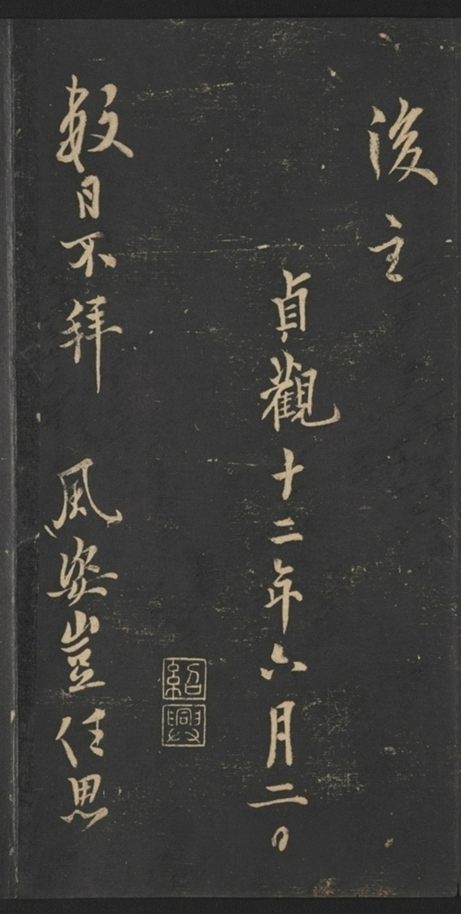 後主
貞觀十二年六月二日
紹興
數日不拜 風姿豈任思